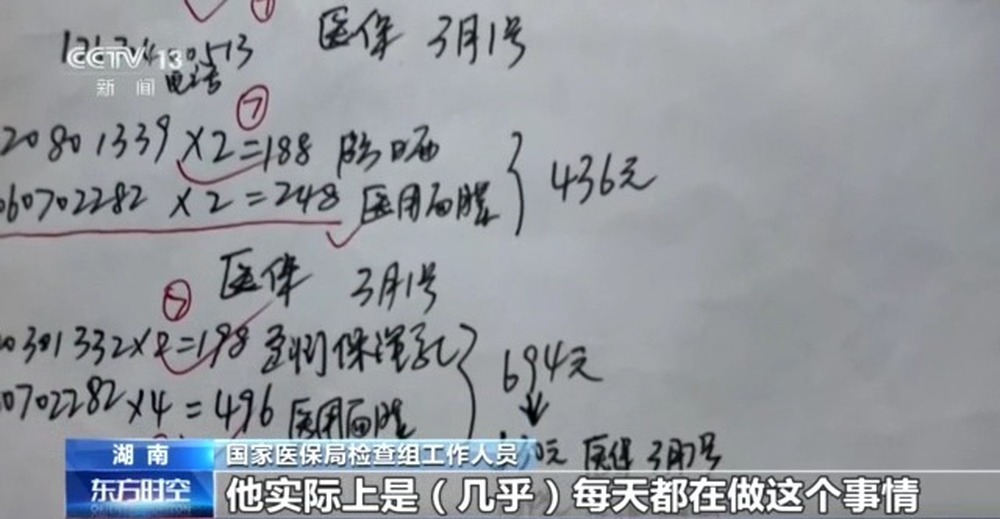 医保 3月1号
CCTV 13
新闻
⑦
20801339 ×2=188 防晒
060702282 ×2=248 医用面膜
436元
医保 3月1号
⑦
0301332×2=198 保湿乳
0702282×4=496 医用面膜
694元
元 医保 3月7号
湖南 国家医保局检查组工作人员
东方时空 他实际上是（几乎）每天都在做这个事情